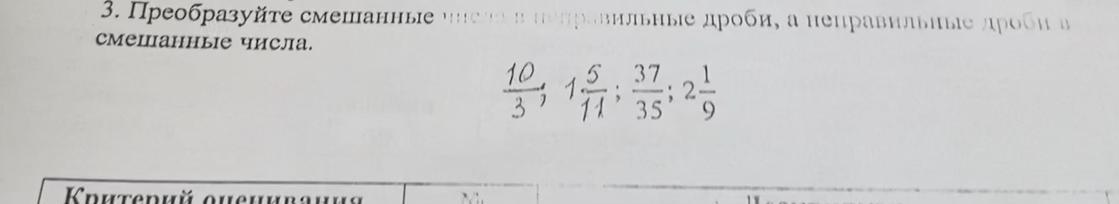 3. Преобразуйте смешанные числа в неправильные дроби, а неправильные дроби в
смешанные числа.
10/3; 1 5/11; 37/35; 2 1/9
Критерий оценивания